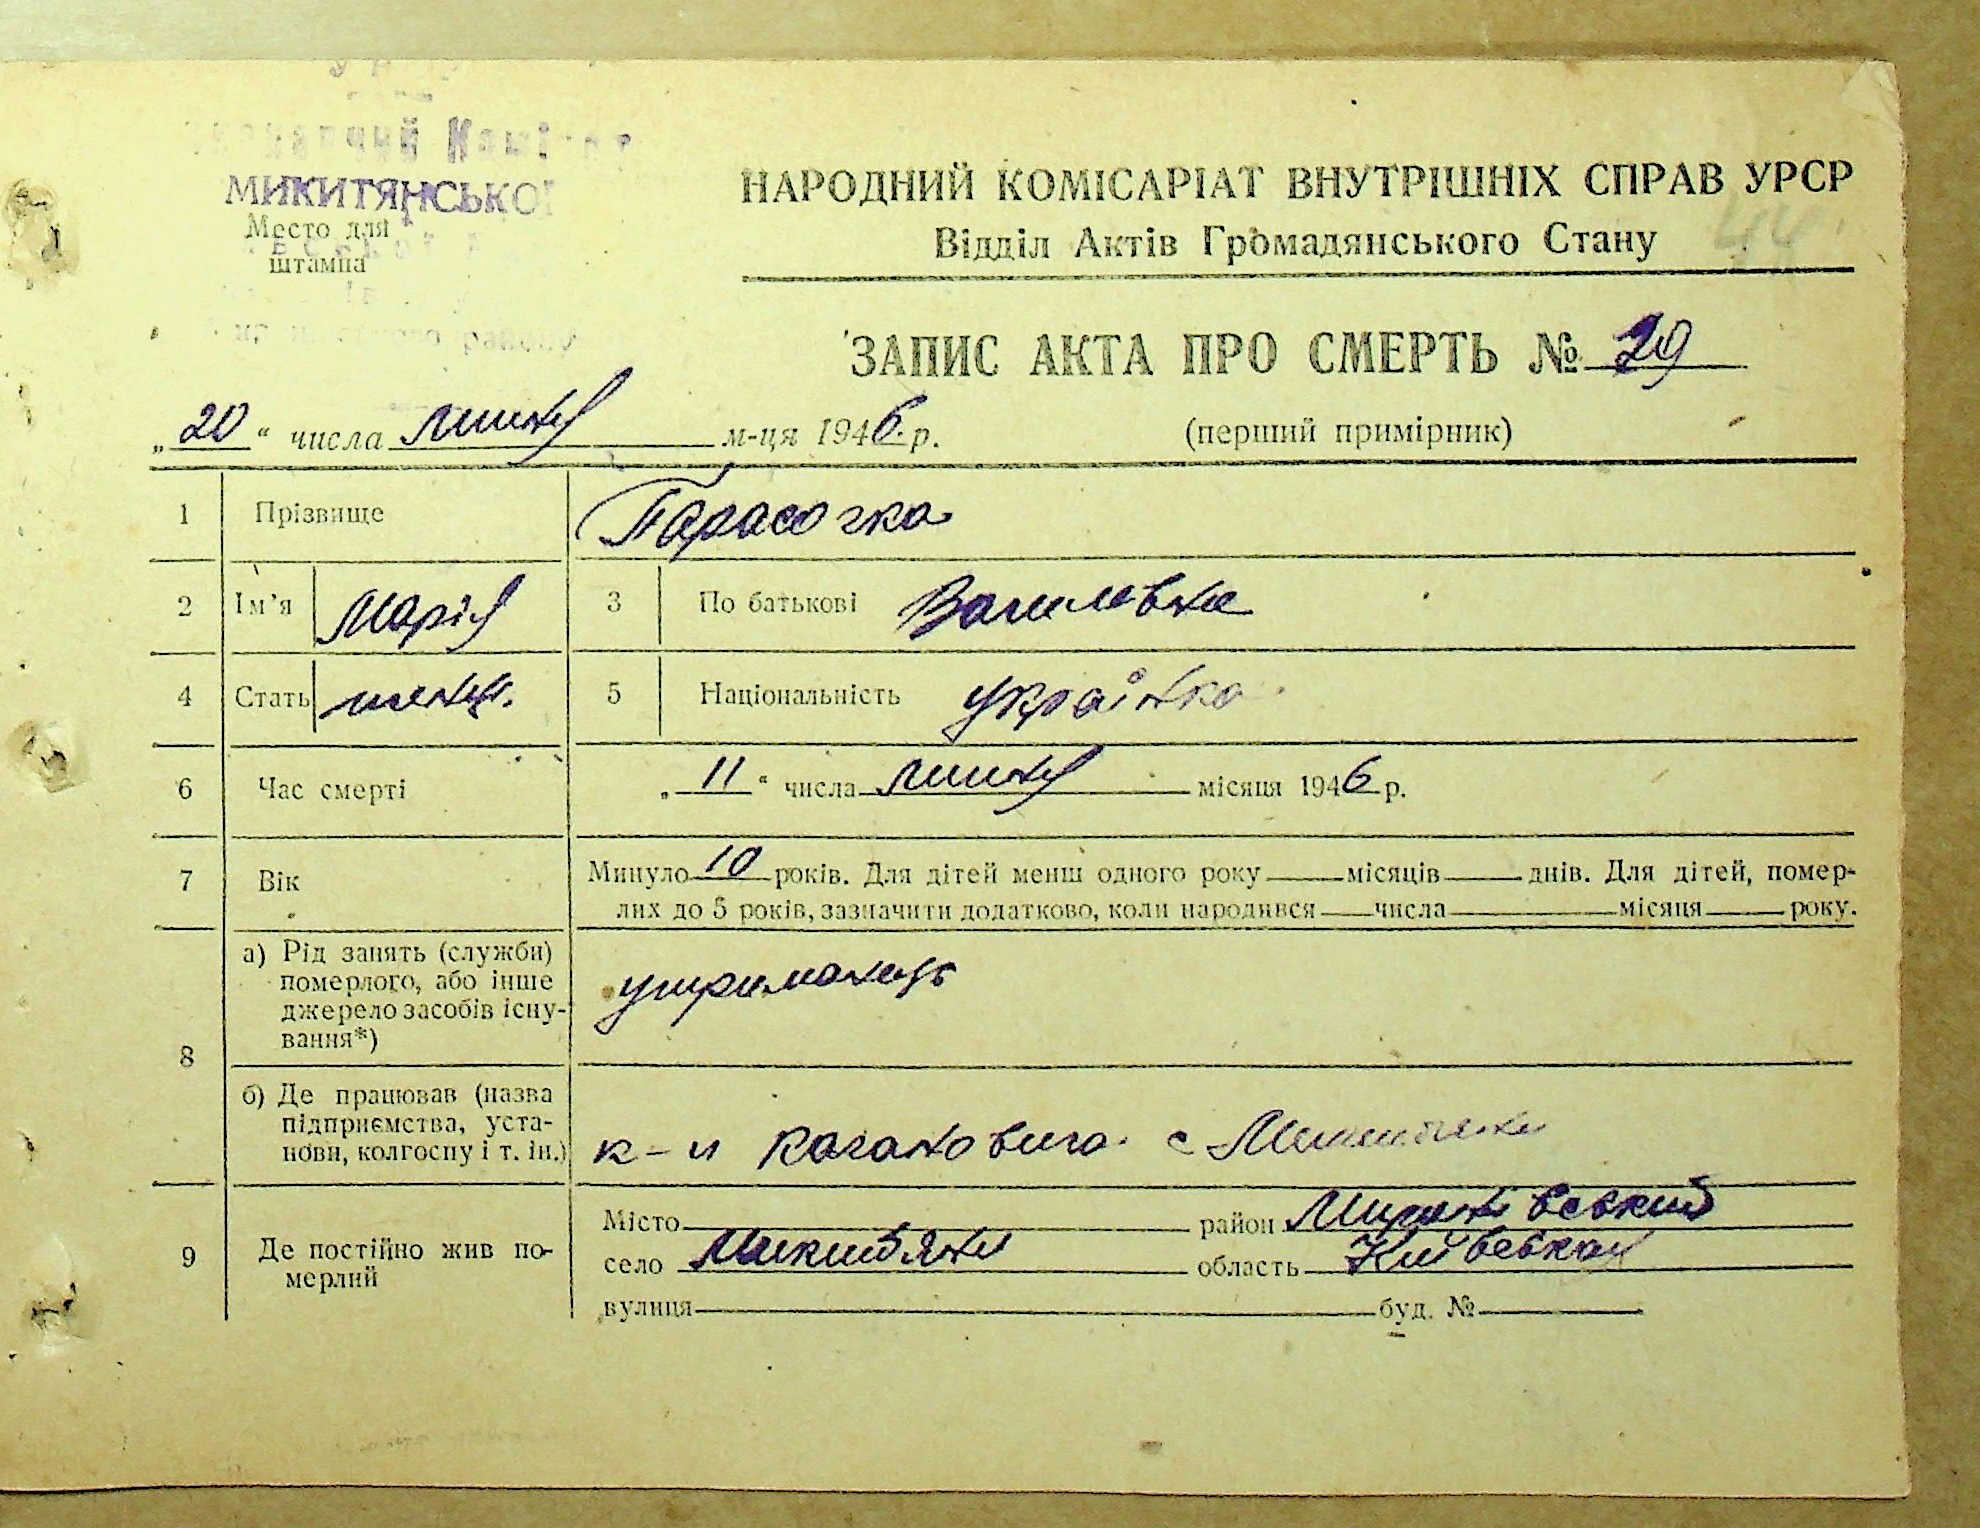 МИКИТЯНСЬКОЇ
Место для
штампа
НАРОДНИЙ КОМІСАРІАТ ВНУТРІШНІХ СПРАВ УРСР
Відділ Актів Громадянського Стану
44.
ЗАПИС АКТА ПРО СМЕРТЬ № 29
„20“ числа липня м-ця 1946.р.
(перший примірник)
1 Прізвище Тарасочка
2 Ім'я Марія 3 По батькові Василовна
4 Стать 5 Національність українка
6 Час смерті „11“ числа липня місяця 1946 р.
7 Вік Минуло 10 років. Для дітей менш одного року місяців днів. Для дітей, помер-
лих до 5 років, зазначити додатково, коли народився числа місяця року.
8 а) Рід занять (служби)
померлого, або інше
джерело засобів існу-
вання*)
утриманець
б) Де працював (назва
підприємства, уста-
нови, колгоспу і т. ін.)
к-п Кагановича с Микитяни
9 Де постійно жив по-
мерлий
Місто район Миронівський
село Микитяни область Київська
вулиця буд. №